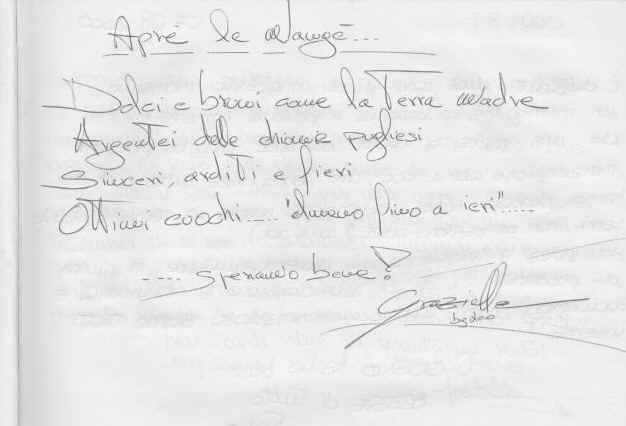 Aprè le Mangè...
Dolci e bruni come la Terra Madre
Argentei delle chiome pugliesi
Sinceri, arditi e fieri
Ottimi cuochi.... "almeno fino a ieri".....
.... sperando bene!
Graziella